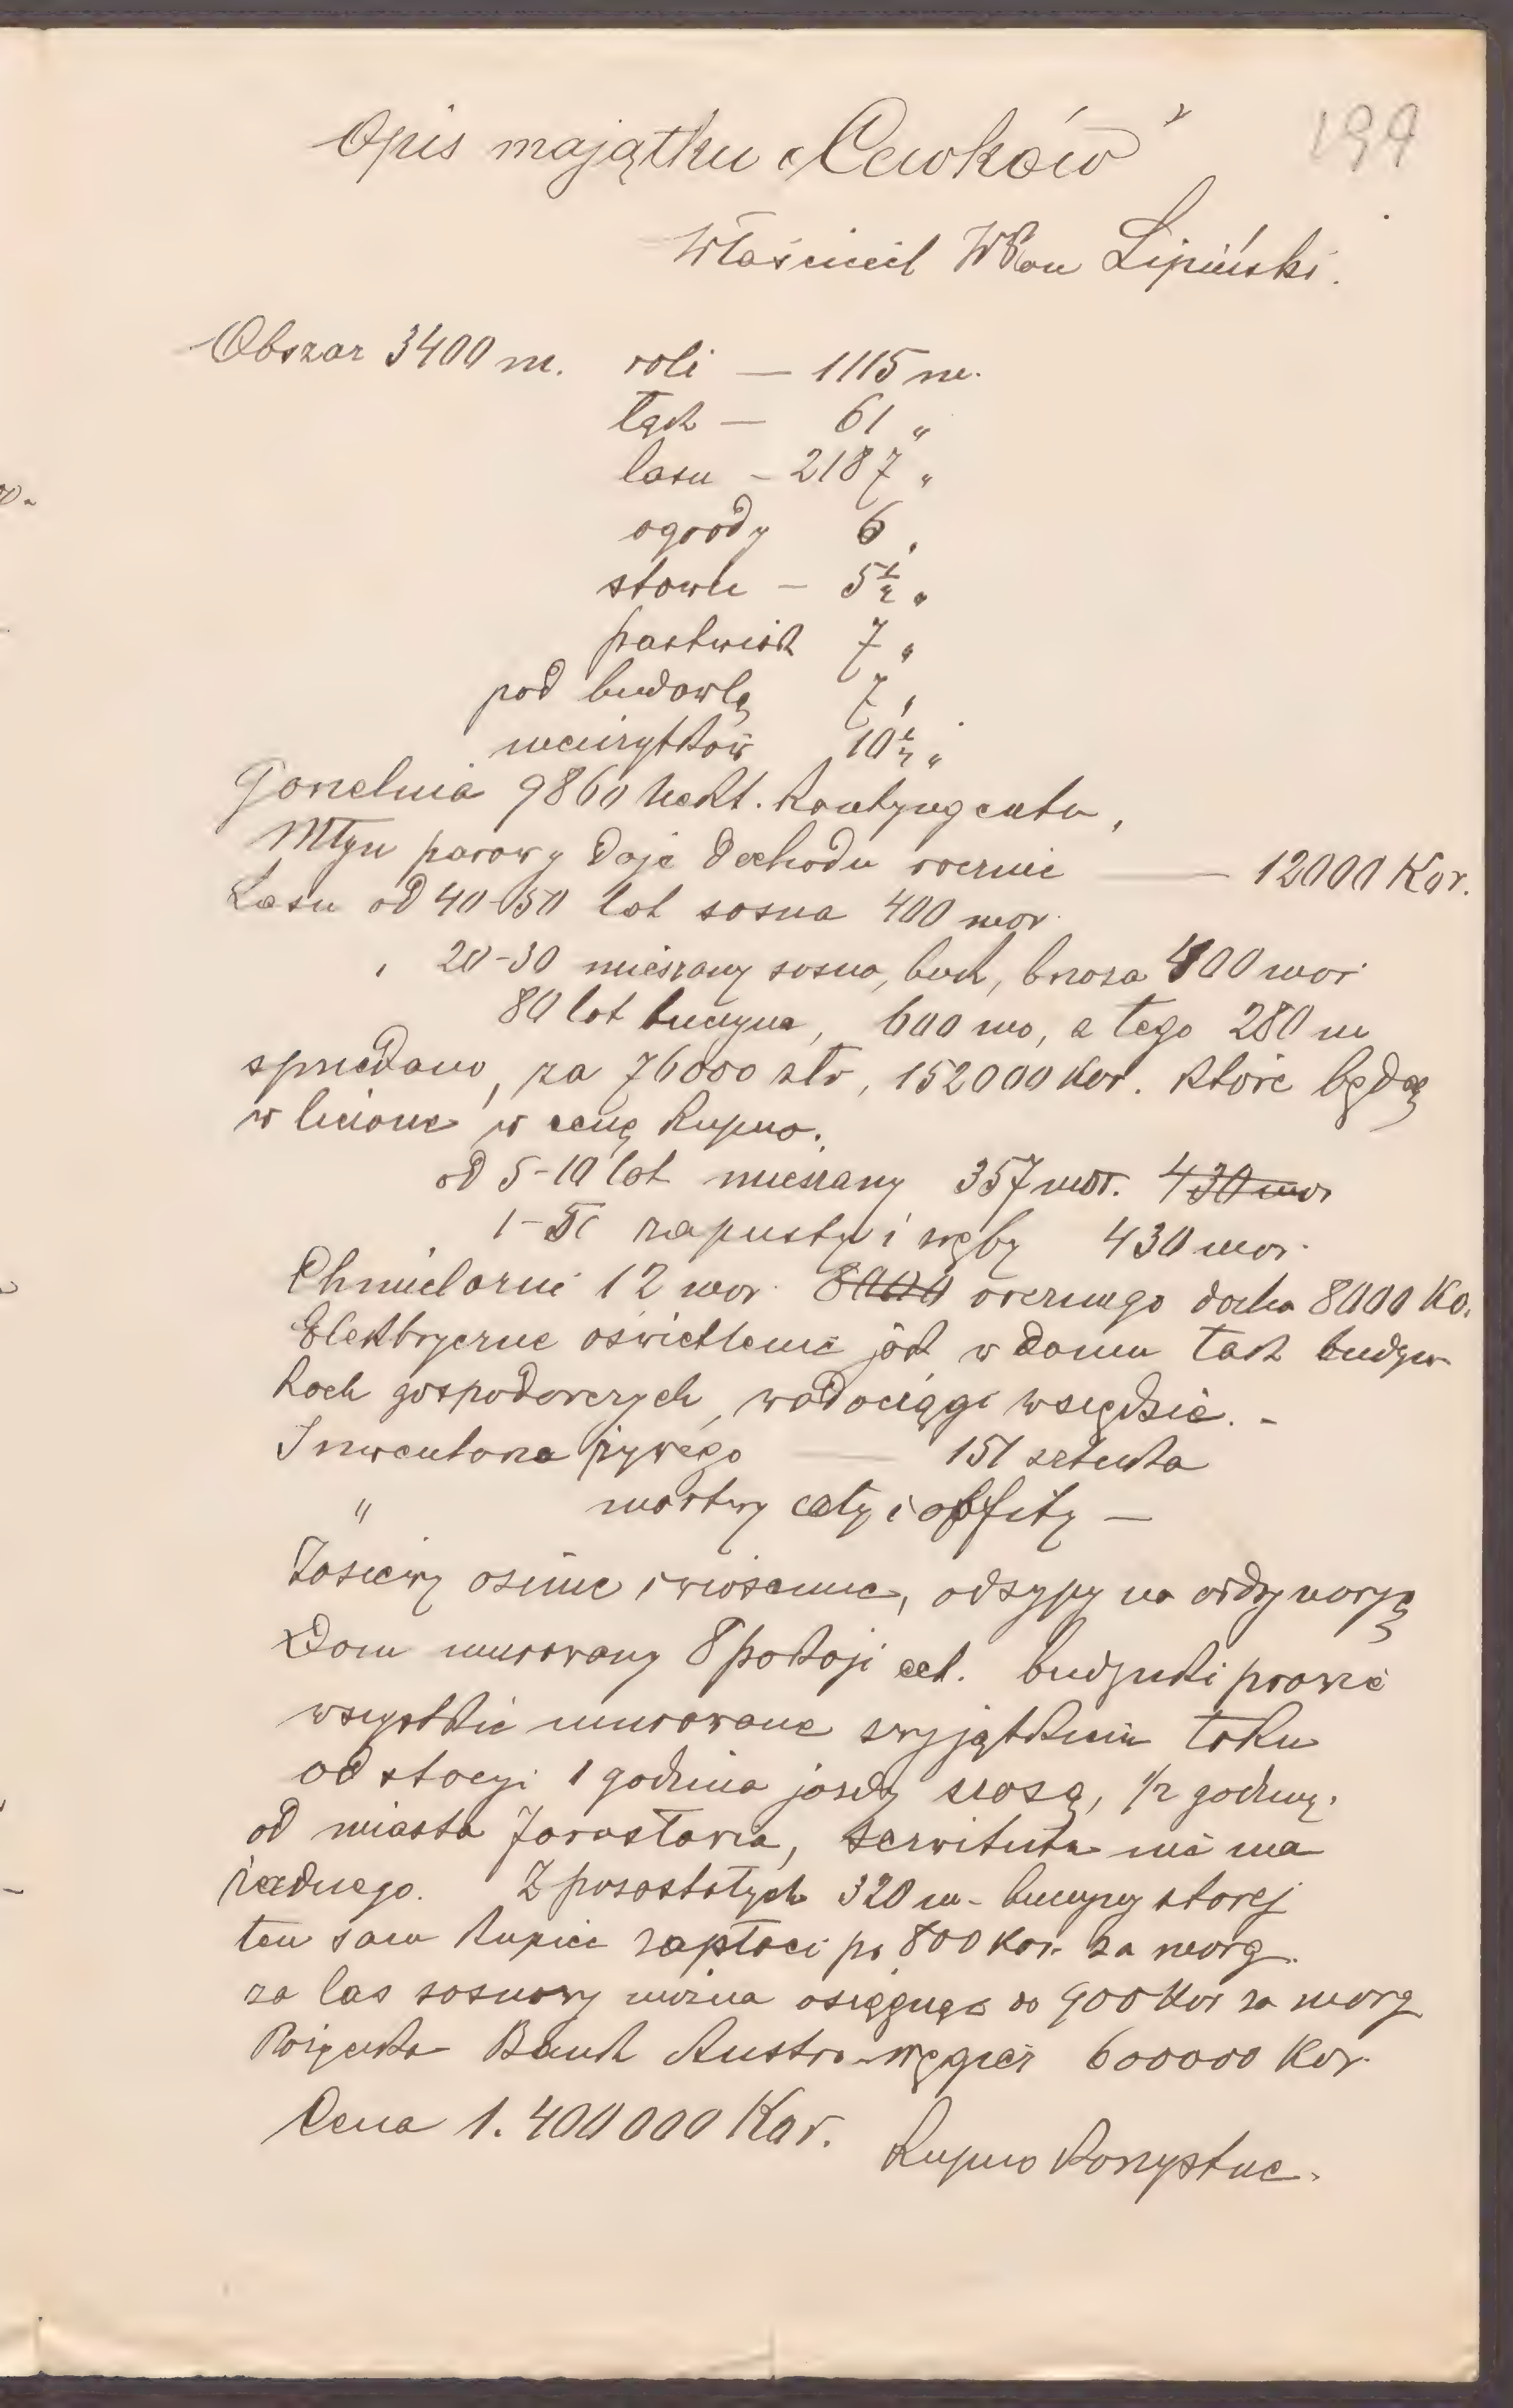 199
Opis majątku „Cewków”
Właściciel WPan Lipiński.
Obszar 3400 m. roli — 1115 m.
łąk — 61 „
lasu — 2187 „
ogrody 6 „
stawu — 5½ „
pastwisk 7 „
pod budowlą 7 „
nieużytków 10½ „
Gorzelnia 9860 hekt. kontyngentu,
Młyn parowy daje dochodu rocznie — 12000 Kor.
Lasu od 40-50 lat sosna 400 mor.
„ 20-30 mieszany sosna, buk, brzoza 400 mor
80 lat buczyna, 600 mo, z tego 280 m
sprzedano, za 76000 złr, 152000 kor. które będą
w liczone w cenę kupna.
od 5-10 lat mieszany 357 mor. 430 mor
zapusty i zręby 430 mor.
Chmielarni 12 mor. 8000 rocznego docho 8000 Ko.
Elektryczne oświetlenie jak w domu tak budyn-
kach gospodarczych, wodociągi wszędzie. -
Inwentarza żywego — 151 sztuka
" martwy cały i obfity —
Zasiewy ozime i wiosenne, odsypy na ordynaryą
Dom murowany 8 pokoji ect. budynki prawie
wszystkie murowane zwyjątkiem toku
od stacyi 1 godzina jazdy szosą, 1/2 godziny.
od miasta Jarosławia, serwitutu nie ma
żadnego. Z pozostałych 320 m - buczyny starej
ten sam kupiec zapłaci po 800 kor. za morg.
za las sosnowy można osiągnąć do 900 Kor za morg
Pożyczka Bank Austro-węgier 600000 Kor.
Cena 1.400000 Kor. Kupno korzystne.